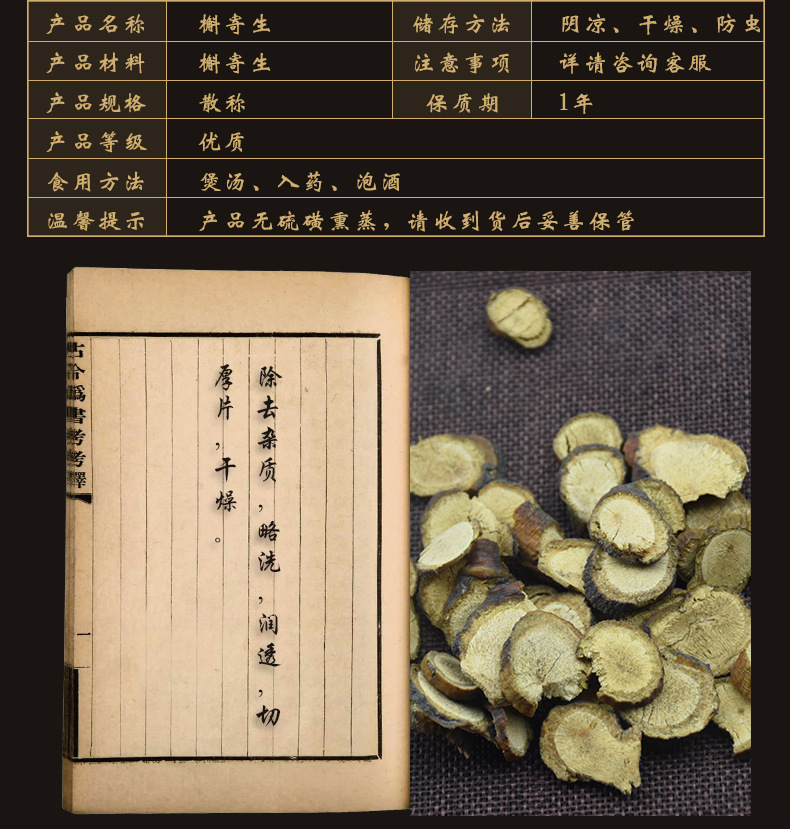 产品名称 槲寄生 储存方法 阴凉、干燥、防虫
产品材料 槲寄生 注意事项 详请咨询客服
产品规格 散称 保质期 1年
产品等级 优质
食用方法 煲汤、入药、泡酒
温馨提示 产品无硫磺熏蒸，请收到货后妥善保管
除去杂质，略洗，润透，切
厚片，干燥。
古今偽書考考釋
一